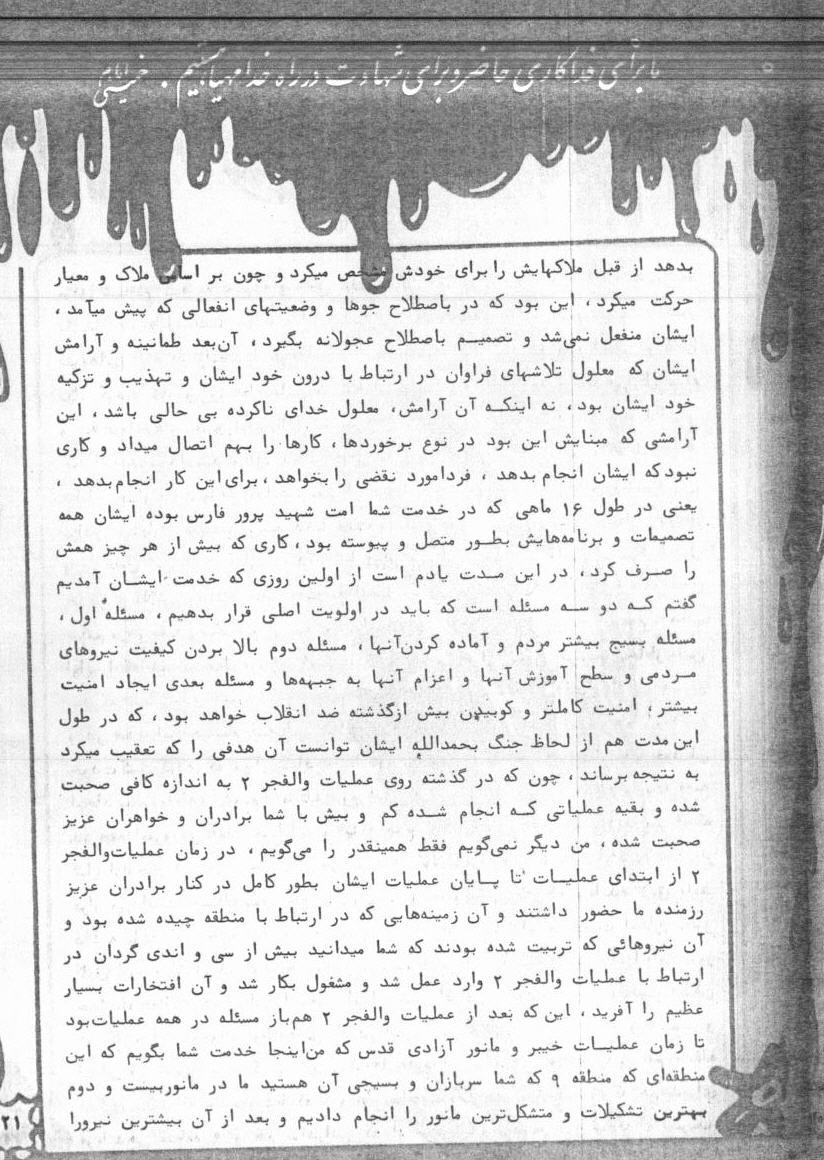 ما برای فداکاری حاضر و برای شهادت در راه خدا مهیا هستیم. امام خمینی
بدهد از قبل ملاکهایش را برای خودش مشخص میکرد و چون بر اساس ملاک و معیار
حرکت میکرد، این بود که در باصطلاح جوها و وضعیتهای انفعالی که پیش میآمد،
ایشان منفعل نمی‌شد و تصمیم باصطلاح عجولانه بگیرد، آن‌بعد طمانینه و آرامش
ایشان که معلول تلاشهای فراوان در ارتباط با درون خود ایشان و تهذیب و تزکیه
خود ایشان بود، نه اینکه آن آرامش، معلول خدای ناکرده بی حالی باشد، این
آرامشی که مبنایش این بود در نوع برخوردها، کارها را بهم اتصال میداد و کاری
نبود که ایشان انجام بدهد، فردامورد نقضی را بخواهد، برای این کار انجام بدهد،
یعنی در طول ۱۶ ماهی که در خدمت شما امت شهید پرور فارس بوده ایشان همه
تصمیمات و برنامه‌هایش بطور متصل و پیوسته بود، کاری که بیش از هر چیز همش
را صرف کرد، در این مدت یادم است از اولین روزی که خدمت ایشان آمدیم
گفتم که دو سه مسئله است که باید در اولویت اصلی قرار بدهیم، مسئله اول،
مسئله بسیج بیشتر مردم و آماده کردن‌آنها، مسئله دوم بالا بردن کیفیت نیروهای
مردمی و سطح آموزش آنها و اعزام آنها به جبهه‌ها و مسئله بعدی ایجاد امنیت
بیشتر، امنیت کاملتر و کوبیدن بیش ازگذشته ضد انقلاب خواهد بود، که در طول
این مدت هم از لحاظ جنگ بحمدالله ایشان توانست آن هدفی را که تعقیب میکرد
به نتیجه برساند، چون که در گذشته روی عملیات والفجر ۲ به اندازه کافی صحبت
شده و بقیه عملیاتی که انجام شده کم و بیش با شما برادران و خواهران عزیز
صحبت شده، من دیگر نمی‌گویم فقط همینقدر را می‌گویم، در زمان عملیات‌والفجر
۲ از ابتدای عملیات تا پایان عملیات ایشان بطور کامل در کنار برادران عزیز
رزمنده ما حضور داشتند و آن زمینه‌هایی که در ارتباط با منطقه چیده شده بود و
آن نیروهائی که تربیت شده بودند که شما میدانید بیش از سی و اندی گردان در
ارتباط با عملیات والفجر ۲ وارد عمل شد و مشغول بکار شد و آن افتخارات بسیار
عظیم را آفرید، این که بعد از عملیات والفجر ۲ هم‌باز مسئله در همه عملیات‌بود
تا زمان عملیات خیبر و مانور آزادی قدس که من‌اینجا خدمت شما بگویم که این
منطقه‌ای که منطقه ۹ که شما سربازان و بسیجی آن هستید ما در مانوربیست و دوم
بهترین تشکیلات و متشکل‌ترین مانور را انجام دادیم و بعد از آن بیشترین نیرورا
۲۱